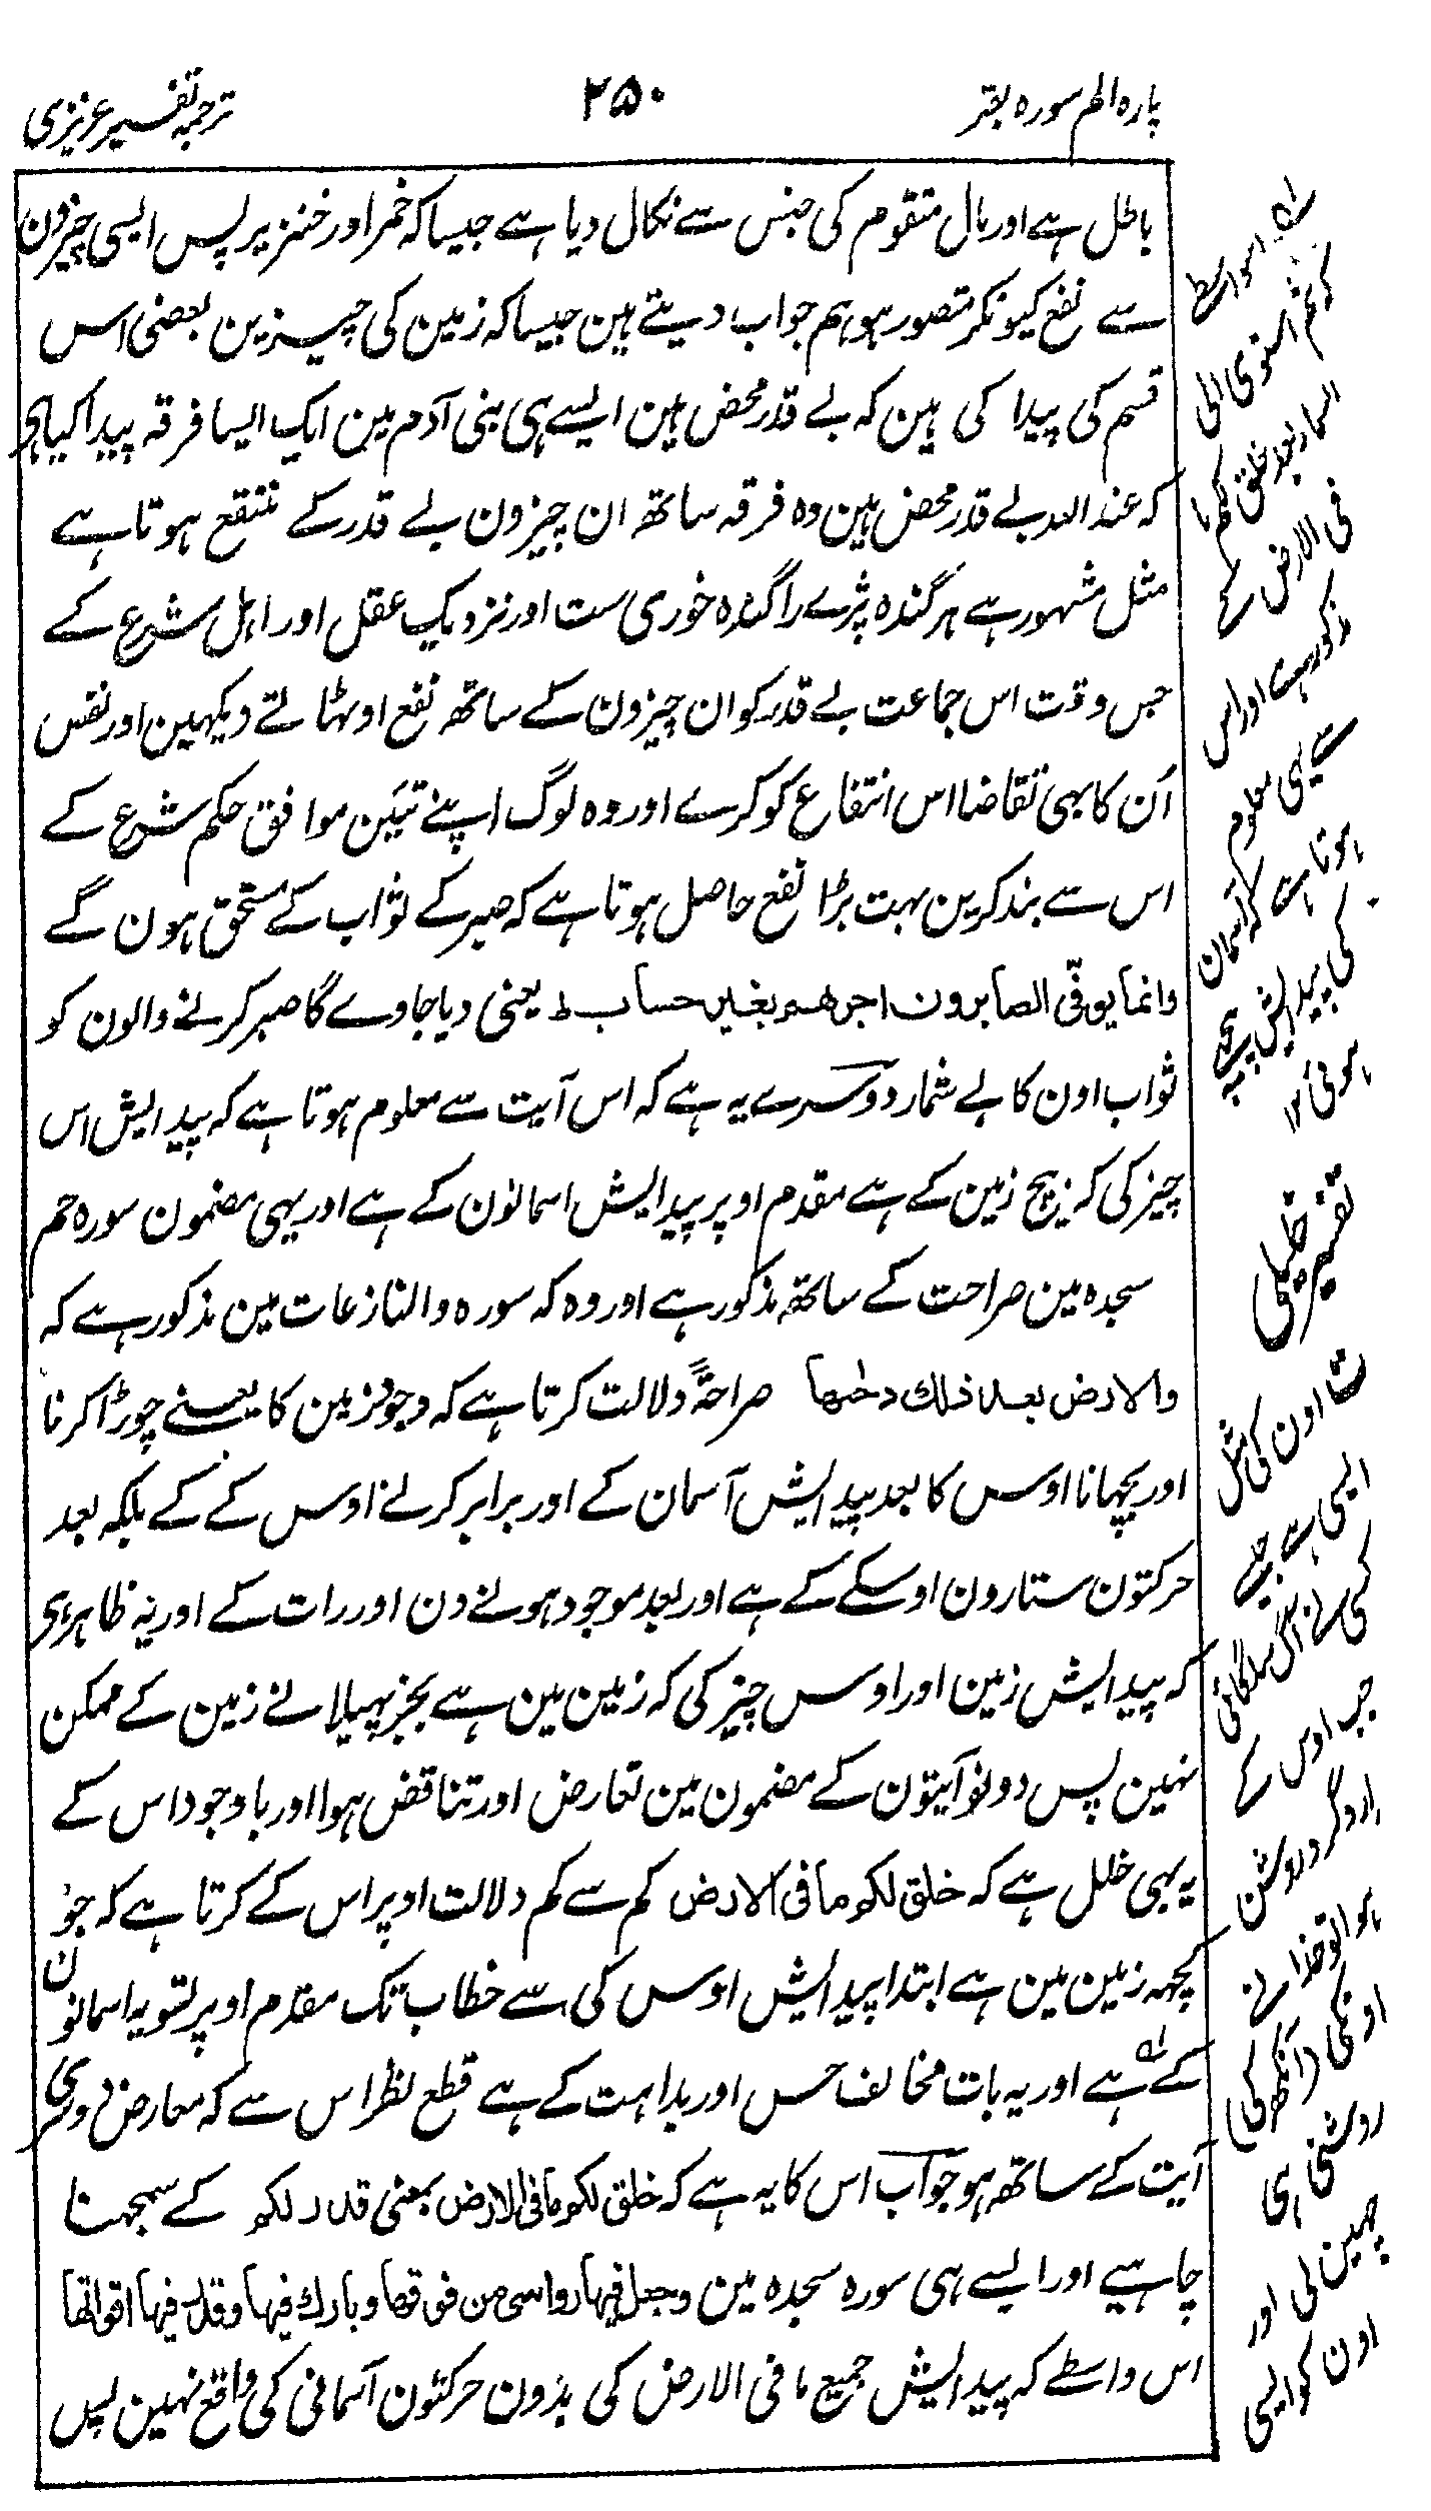 پاره الم سوره بقر
۲۵۰
ترجمہ تفسیر عزیزی
باطل ہے اور مال متقوم کی جنس سے نکال دیا ہے جیسا کہ خمر اور خنزیر پس ایسی چیزون
سے نفع کیونکر متصور ہو ہم جواب دیتے ہین جیسا کہ زمین کی چیزین بعضی اس
قسم کی پیدا کی ہین کہ بے قدر محض ہین ایسے ہی بنی آدم مین ایک ایسا فرقہ پیدا کیا ہی
کہ عند اللہ بے قدر محض ہین وہ فرقہ ساتھ ان چیزون بے قدر کے منتفع ہوتا ہے
مثل مشہور ہے ہر گندہ پزے را گندہ خوری ست اور نزدیک عقل اور اہل شرع کے
جس وقت اس جماعت بے قدر کو ان چیزون کے ساتھ نفع اوٹھاتے دیکھین اور نفس
اُن کا بھی تقاضا اس انتفاع کو کرے اور وہ لوگ اپنے تئین موافق حکم شرع کے
اس سے بند کرین بہت بڑا نفع حاصل ہوتا ہے کہ صبر کے ثواب کے مستحق ہون گے
وانما یوفّی الصابرون اجرهم بغیر حساب ط یعنی دیا جاوے گا صبر کرنے والون کو
ثواب اون کا بے شمار دوسرے یہ ہے کہ اس آیت سے معلوم ہوتا ہے کہ پیدایش اس
چیز کی کہ بیچ زمین کے ہے مقدم اوپر پیدایش اسمانون کے ہے اور یہی مضمون سورہ حم
سجدہ مین صراحت کے ساتھ مذکور ہے اور وہ کہ سورہ والنازعات مین مذکور ہے کہ
والارض بعد ذلك دحٰها صراحةً دلالت کرتا ہے کہ دحو زمین کا یعنے چوڑا کرنا
اور بچھانا اوس کا بعد پیدایش آسمان کے اور برابر کرنے اوس کے کے بلکہ بعد
حرکتون ستارون اوسکے کے ہے اور بعد موجود ہونے دن اور رات کے اور یہ ظاہر ہی
کہ پیدایش زمین اور اوس چیز کی کہ زمین مین ہے بجز پھیلانے زمین کے ممکن
نہین پس دونو آیتون کے مضمون مین تعارض اور تناقض ہوا اور باوجود اس کے
یہ بھی خلل ہے کہ خلق لکم ما فی الارض کم سے کم دلالت اوپر اس کے کرتا ہے کہ جو
کچھ زمین مین ہے ابتدا پیدایش اوس کی سے خطاب تک مقدم اوپر تسویہ اسمانون
کے ہے اور یہ بات مخالف حس اور بداہت کے ہے قطع نظر اس سے کہ معارض دوسری
آیت کے ساتھ ہو جواب اس کا یہ ہے کہ خلق لکم ما فی الارض بمعنی قدر لکم کے سمجھنا
چاہیے اور ایسے ہی سورہ سجدہ مین وجعل فیها رواسی من فوقها وبارك فیها وقدر فیها اقواتها
اس واسطے کہ پیدایش جمیع ما فی الارض کی بدون حرکتون آسمانی کی واقع نہین پس
کہ ثم استوی الی
السماء بعد خلق لکم ما
فی الارض کے
مذکور ہے اور اس
سے یہی معلوم
ہوتا ہے کہ آسمان
کی پیدایش پیچھے
ہوئی ۱۲
تفسیر خلیلی
ت اون کی مثل
ایسی ہے جیسے
کسی نے آگ سلگائی
جب اوس کے
ارد گرد روشن
ہوا تو خدا نے
اونکی (آنکھ کی)
روشنی ہی
چھین لی اور
اون کو ایسی